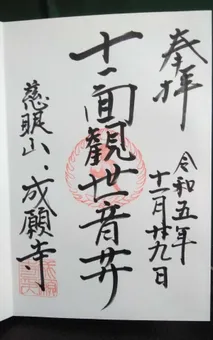 奉拝
令和五年
十一月廿九日
十一面観世音菩
慈眼山 成願寺